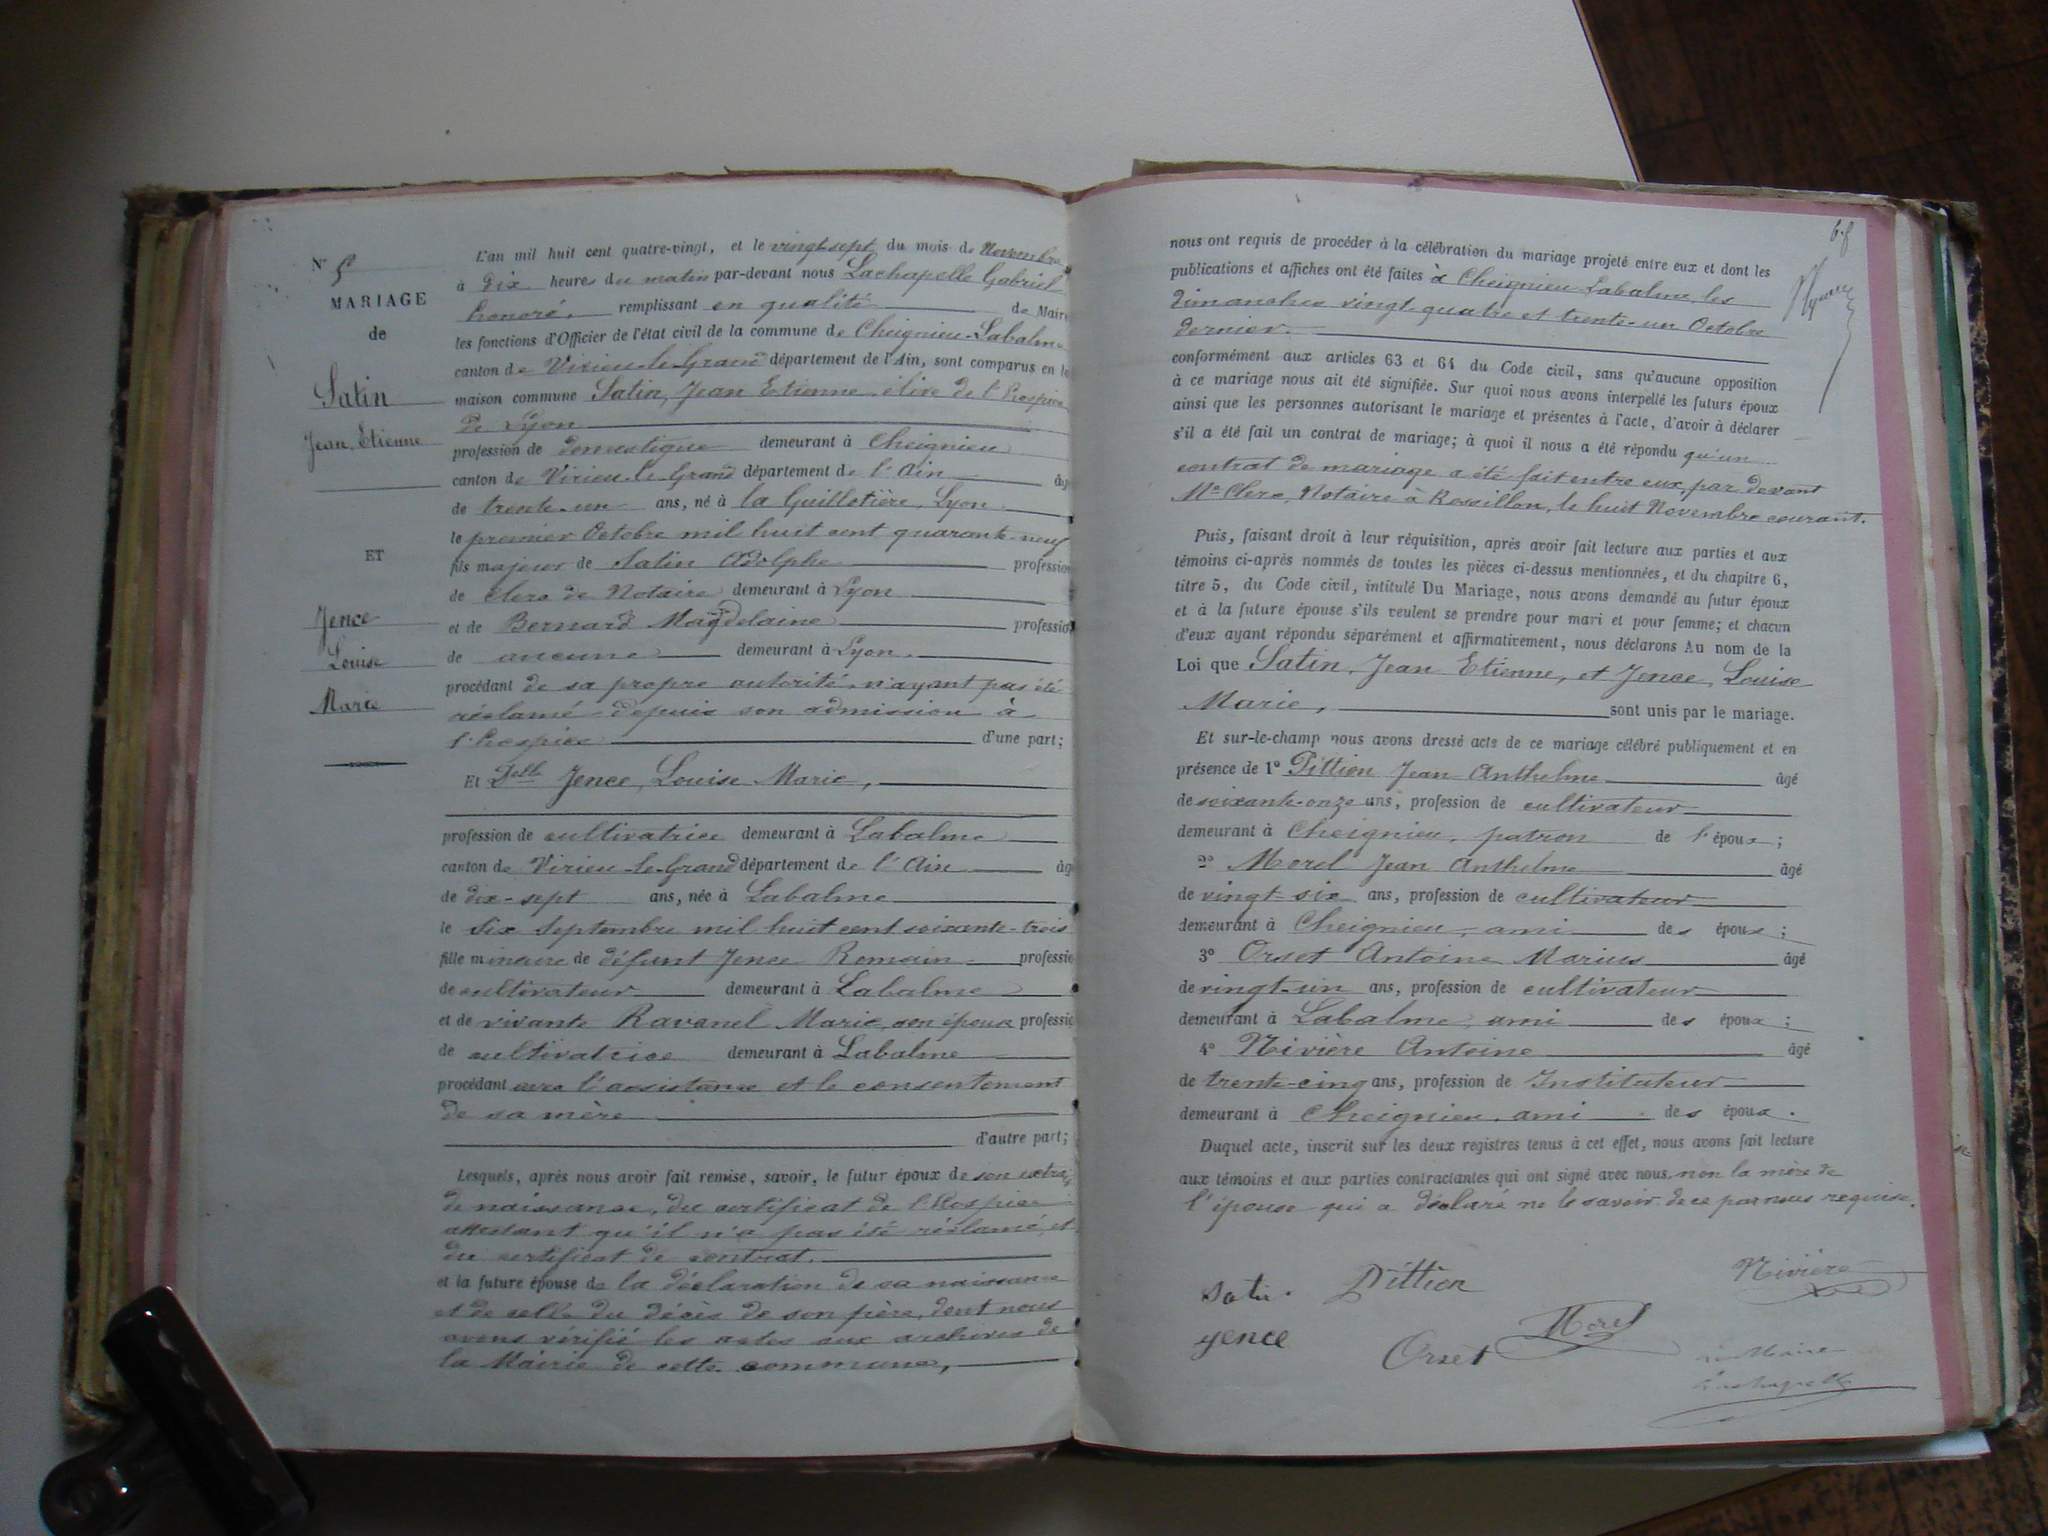 N° 5
MARIAGE
de
Satin
Jean, Etienne
ET
Jence
Louise
Marie
L'an mil huit cent quatre-vingt, et le vingt-sept du mois de Novembre
à dix heures du matin par-devant nous Lachapelle Gabriel
honoré, remplissant en qualité de Maire
les fonctions d'Officier de l'état civil de la commune de Cheignieu-Labalme
canton de Virieu-le-Grand département de l'Ain, sont comparus en la
maison commune Satin, Jean Etienne, élève de l'hospice
de Lyon
profession de domestique demeurant à Cheignieu
canton de Virieu-le-Grand département de l'Ain âgé
de trente-un ans, né à la Guillotière, Lyon
le premier Octobre mil huit cent quarante-neuf
fils majeur de Satin Adolphe profession
de clerc de Notaire demeurant à Lyon
et de Bernard Magdelaine profession
de aucune demeurant à Lyon.
procédant de sa propre autorité, n'ayant pas été
réclamé depuis son admission à
l'hospice d'une part;
Et Delle Jence, Louise Marie,
profession de cultivatrice demeurant à Labalme
canton de Virieu-le-Grand département de l'Ain âgé
de dix-sept ans, née à Labalme
le six Septembre mil huit cent soixante-trois
fille mineure de défunt Jence Romain professio
de cultivateur demeurant à Labalme
et de vivante Ravanel Marie, son épouse professio
de cultivatrice demeurant à Labalme
procédant avec l'assistance et le consentement
de sa mère
d'autre part;
Lesquels, après nous avoir fait remise, savoir, le futur époux de son extrait
de naissance, du certificat de l'hospice
attestant qu'il n'a pas été réclamé, et
du certificat de contrat.
et la future épouse de la déclaration de sa naissance
et de celle du décès de son père, dont nous
avons vérifié les actes aux archives de
la Mairie de cette commune,
nous ont requis de procéder à la célébration du mariage projeté entre eux et dont les
publications et affiches ont été faites à Cheignieu-Labalme, les
dimanches vingt-quatre et trente-un Octobre
dernier.
conformément aux articles 63 et 64 du Code civil, sans qu'aucune opposition
à ce mariage nous ait été signifiée. Sur quoi nous avons interpellé les futurs époux
ainsi que les personnes autorisant le mariage et présentes à l'acte, d'avoir à déclarer
s'il a été fait un contrat de mariage; à quoi il nous a été répondu qu'un
contrat de mariage a été fait entre eux, par devant
Me Clerc, Notaire à Rossillon, le huit Novembre courant.
Puis, faisant droit à leur réquisition, après avoir fait lecture aux parties et aux
témoins ci-après nommés de toutes les pièces ci-dessus mentionnées, et du chapitre 6,
titre 5, du Code civil, intitulé Du Mariage, nous avons demandé au futur époux
et à la future épouse s'ils veulent se prendre pour mari et pour femme; et chacun
d'eux ayant répondu séparément et affirmativement, nous déclarons Au nom de la
Loi que Satin, Jean Etienne, et Jence, Louise
Marie, sont unis par le mariage.
Et sur-le-champ nous avons dressé acte de ce mariage célébré publiquement et en
présence de 1° Pittion Jean Anthelme âgé
de soixante-onze ans, profession de cultivateur
demeurant à Cheignieu, patron de l'époux;
2° Morel Jean Anthelme âgé
de vingt-six ans, profession de cultivateur
demeurant à Cheignieu, ami des époux;
3° Orset Antoine Marius âgé
de vingt-un ans, profession de cultivateur
demeurant à Labalme, ami des époux;
4° Nivière Antoine âgé
de trente-cinq ans, profession de Instituteur
demeurant à Cheignieu, ami des époux.
Duquel acte, inscrit sur les deux registres tenus à cet effet, nous avons fait lecture
aux témoins et aux parties contractantes qui ont signé avec nous, non la mère de
l'épouse qui a déclaré ne le savoir de ce par nous requise.
Satin Pittion Nivière
Morel
yence Orset
Le Maire
Lachapelle